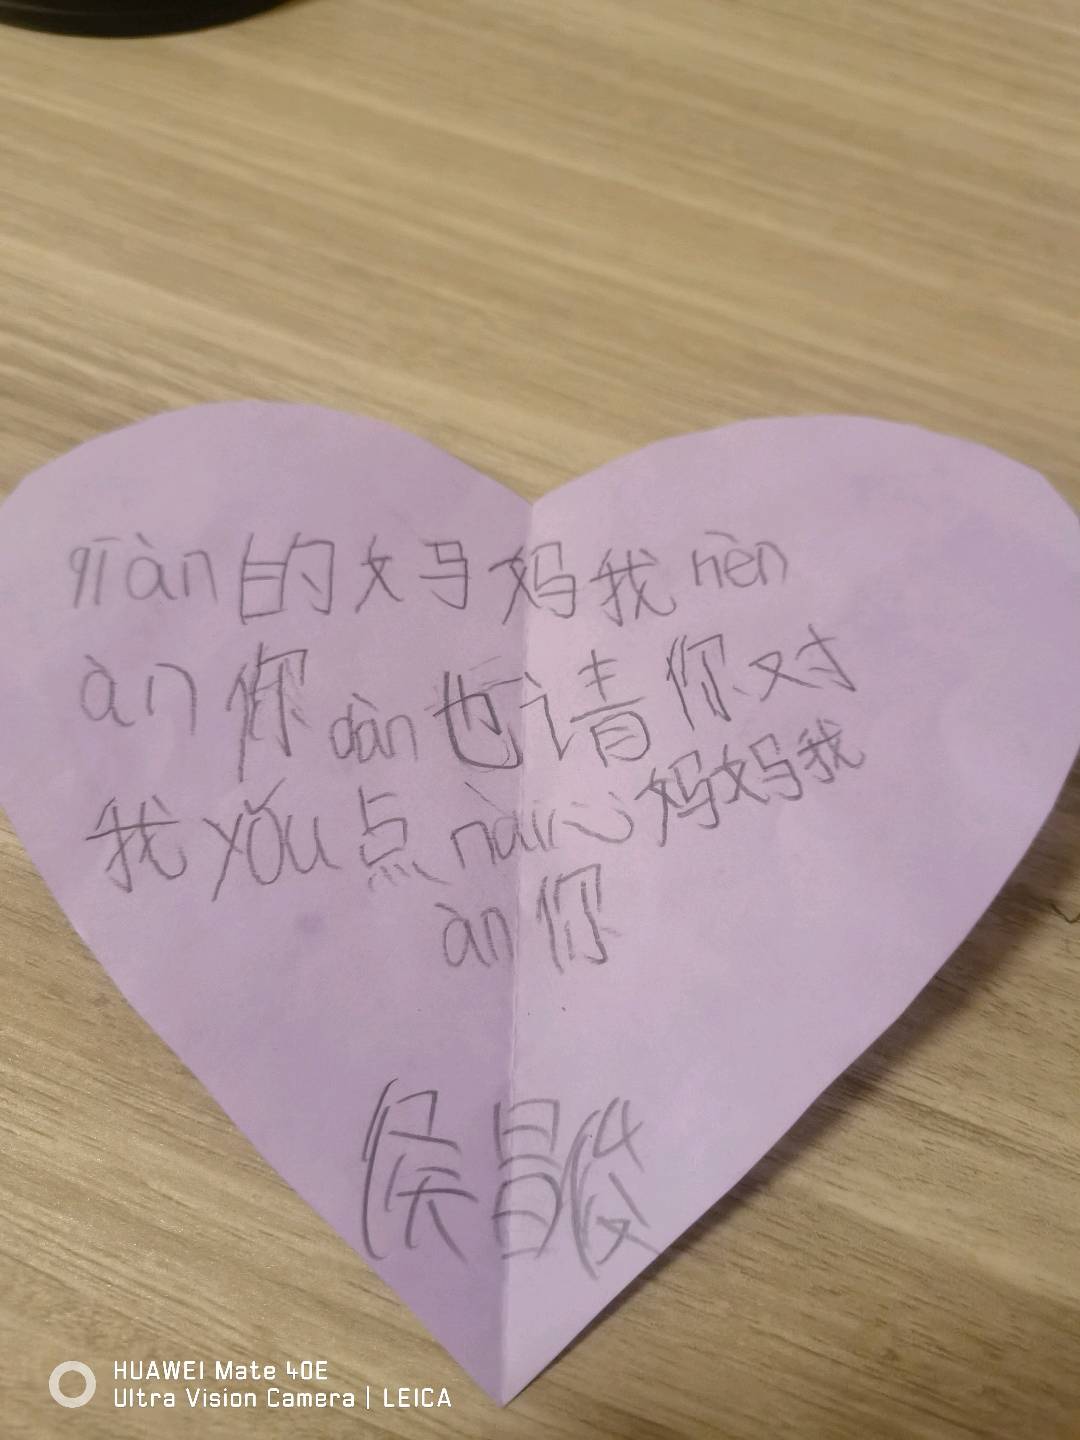 qiàn的妈妈我nèn
àn你dàn也请你对
我yǒu点nài心妈妈我
àn你
侯昌俊
HUAWEI Mate 40E
Ultra Vision Camera | LEICA